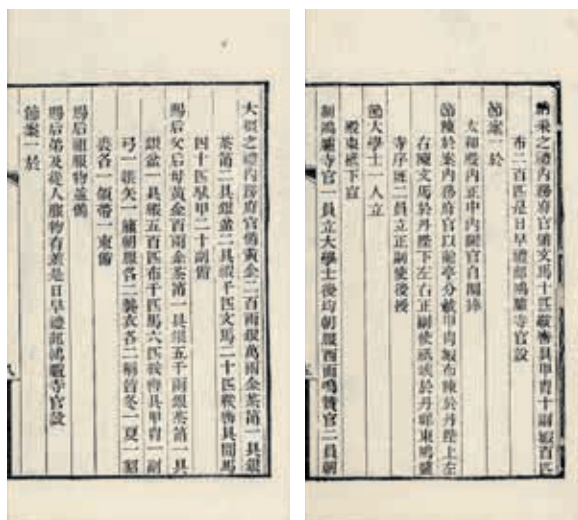 納采之禮內務府官備文馬十匹鞍轡具甲冑十副緞百匹
布二百匹是日早禮部鴻臚寺官設
節案一於
太和殿內正中內閣官自閣捧
節陳於案內務府官以龍亭分載甲冑緞布陳於丹陛上左
右陳文馬於丹陛下左右正副使祗竢於丹墀東鴻臚
寺序班二員立正副使後授
節大學士一人立
殿東檐下宣
制鴻臚寺官一員立大學士後均朝服西面鳴贊官二員朝
大徵之禮內務府官備黃金二百兩銀萬兩金茶筩一具銀
茶筩二具銀盆二具緞千匹文馬二十匹鞍轡具閒馬
四十匹甲二十副備
賜后父后母黃金百兩金茶筩一具銀五千兩銀茶筩一具
銀盆一具緞五百匹布千匹馬六匹鞍轡具甲冑一副
弓一張矢一箙朝服各二襲衣各二稱皆冬一夏一貂
裘各一領帶一束備
賜后祖服物並備
賜后弟及從人服物有差是日早禮部鴻臚寺官設
節案一於